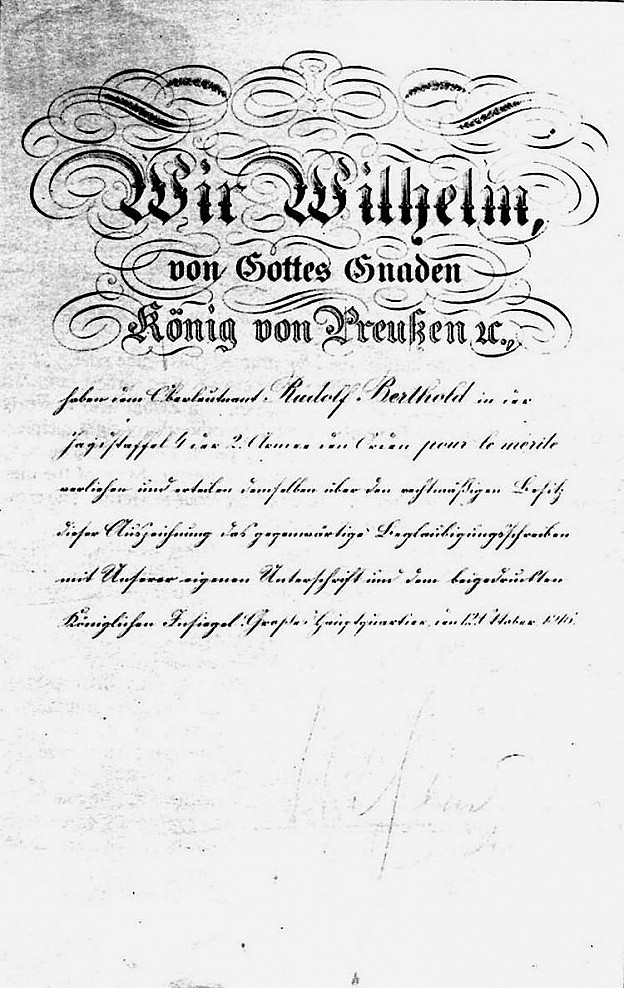 Wir Wilhelm,
von Gottes Gnaden
König von Preußen ꝛc.,
haben dem Oberleutnant Rudolf Berthold in der
Jagdstaffel 4 der 2. Armee den Orden pour le mérite
verliehen und erteilen demselben über den rechtmäßigen Besitz
dieser Auszeichnung das gegenwärtige Beglaubigungsschreiben
mit Unserer eigenen Unterschrift und dem beigedruckten
Königlichen Insiegel. Großes Hauptquartier, den 12. Oktober 1916.